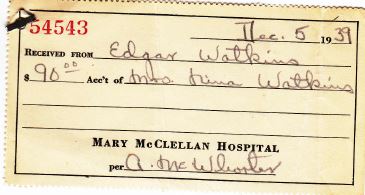 54543
Dec. 5 1939
RECEIVED FROM Edgar Watkins
$90.00 Acc't of Mrs. Nina Watkins
MARY MCCLELLAN HOSPITAL
per A. McWhorter